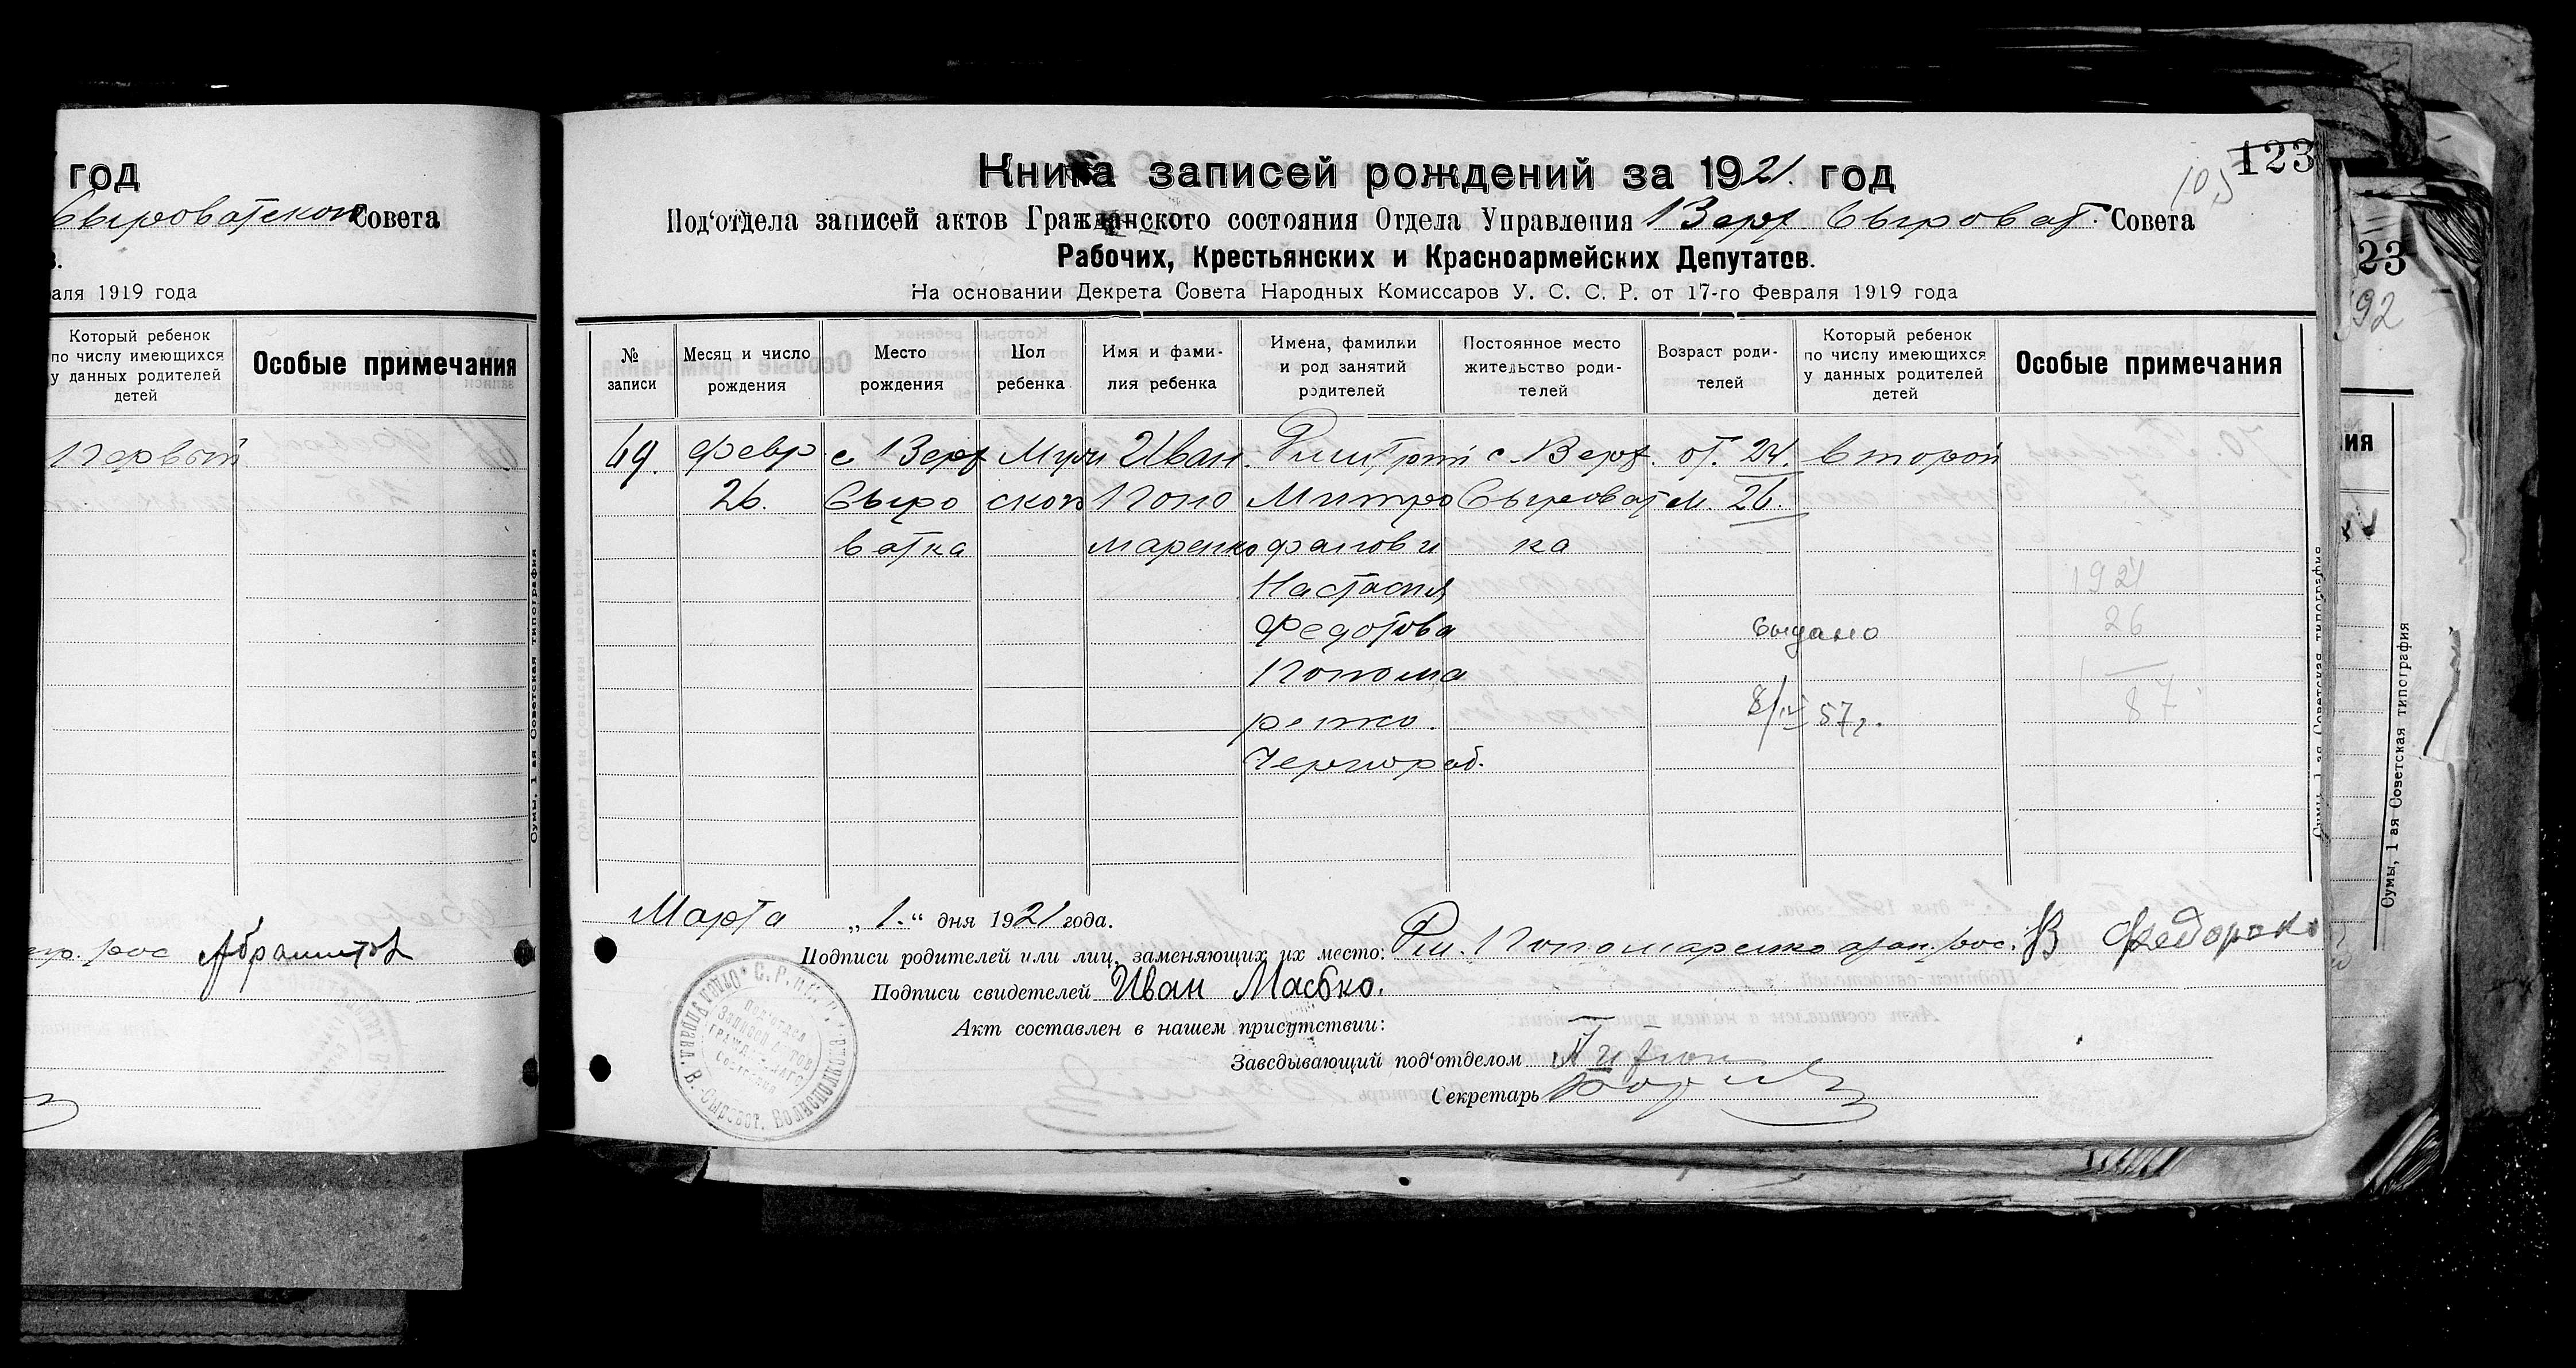 год
Сыроватского Совета
аля 1919 года
Который ребенок
по числу имеющихся
у данных родителей
детей
Особые примечания
Первый
Сумы, 1 ая Советская типография
123
105
Книга записей рождений за 1921 год
Под‘отдела записей актов Гражданского состояния Отдела Управления Верх Сыроват. Совета
Рабочих, Крестьянских и Красноармейских Депутатов.
На основании Декрета Совета Народных Комиссаров У. С. С. Р. от 17-го Февраля 1919 года
№
записи
Месяц и число
рождения
Место
рождения
Пол
ребенка
Имя и фами-
лия ребенка
Имена, фамилии
и род занятий
родителей
Постоянное место
жительство роди-
телей
Возраст роди-
телей
Который ребенок
по числу имеющихся
у данных родителей
детей
Особые примечания
69.
февр
26.
с Верх
Сыро
ватка
Муж
ской
Иван
Поно
маренко
Дмитрий
Митро
фанов и
Настасия
Федотова
Понома
ренко.
Чернораб.
с Верх.
Сыроват
ка
от. 24.
м. 26.
второй
выдано
8/IV 57 г.
1921
26
87
Марта „1.“ дня 1921 года.
Подписи родителей или лиц, заменяющих их место: Дм. Пономаренко
Подписи свидетелей Иван Масько.
Акт составлен в нашем присутствии:
Заведывающий под‘отделом
Секретарь
23
92
ия
Сумы, 1 ая Советская типография